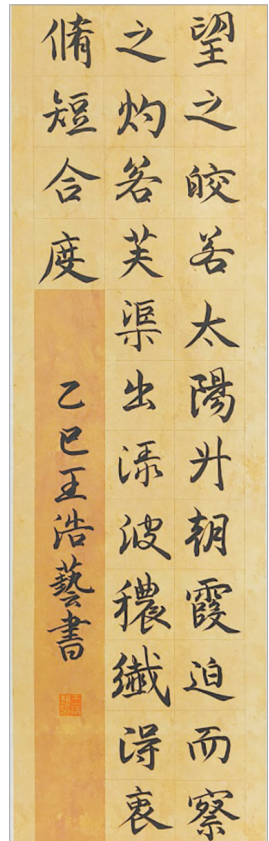 望之皎若太陽升朝霞迫而察
之灼若芙渠出渌波穠纖得衷
脩短合度
乙巳王浩藝書